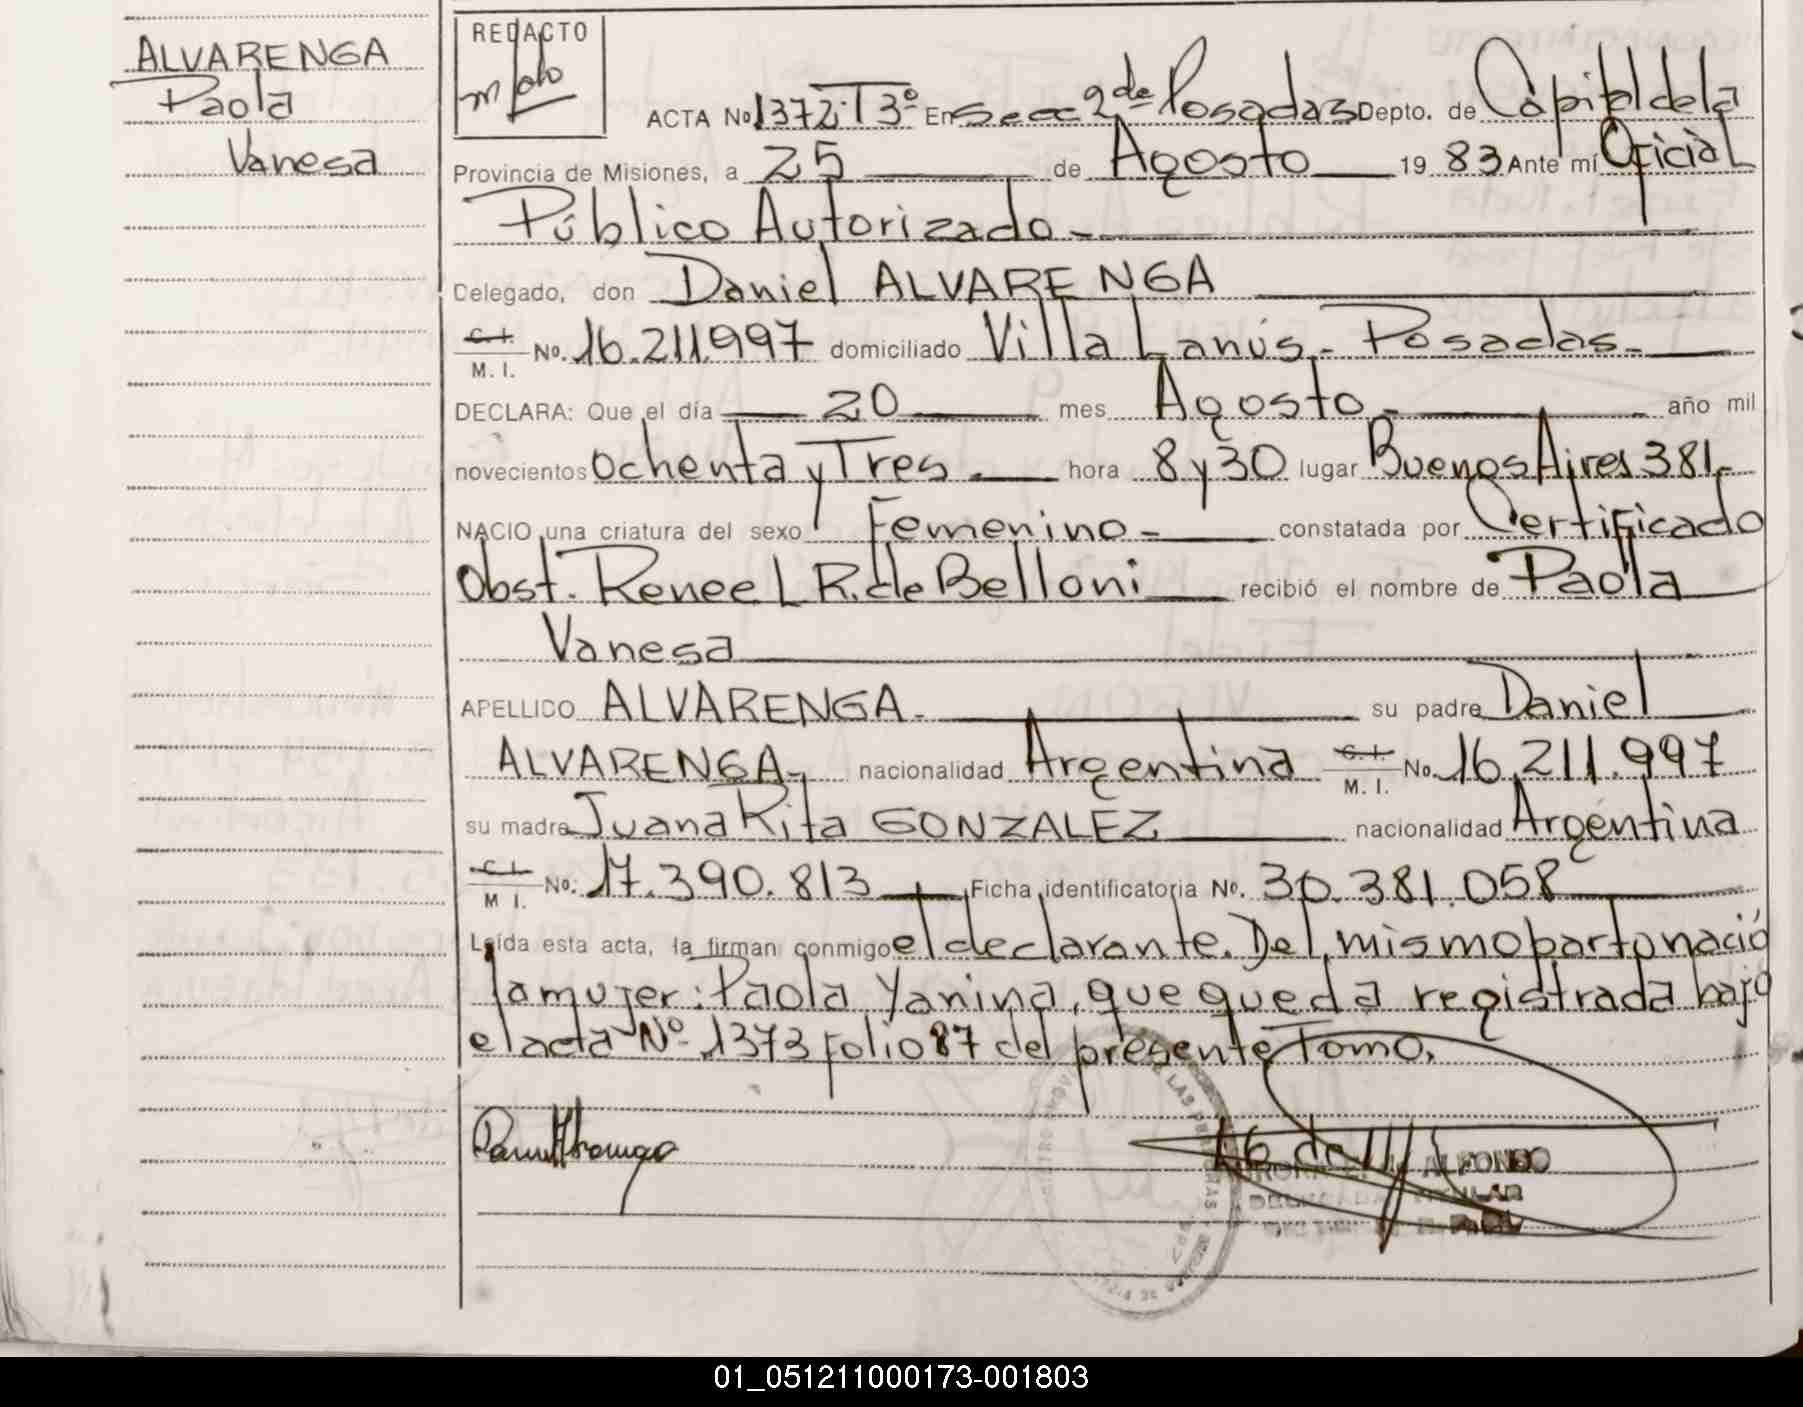 ALVARENGA
Paola
Vanesa
REDACTO
ACTA No 1372 T3º En Secc 2da Posadas Depto. de Capital de la
Provincia de Misiones, a 25 de Agosto 19 83 Ante mí Oficial
Público Autorizado -
Delegado, don Daniel ALVARENGA
C. I.
M. I. No. 16.211.997 domiciliado Villa Lanús - Posadas -
DECLARA: Que el día 20 mes Agosto - año mil
novecientos ochenta y Tres. hora 8 y 30 lugar Buenos Aires 381.
NACIO una criatura del sexo Femenino - constatada por Certificado
Obst. Renee L R. de Belloni recibió el nombre de Paola
Vanesa
APELLIDO ALVARENGA. su padre Daniel
ALVARENGA, nacionalidad Argentina C. I. M. I. No. 16.211.997
su madre Juana Rita GONZALEZ nacionalidad Argentina
C. I.
M I. No. 17.390.813 Ficha identificatoria No. 30.381.058
Leída esta acta, la firman conmigo el declarante. Del mismo parto nació
la mujer: Paola Yanina, que queda registrada bajo
el acta Nº 1373 folio 87 del presente Tomo.
ALFONSO
01_051211000173-001803